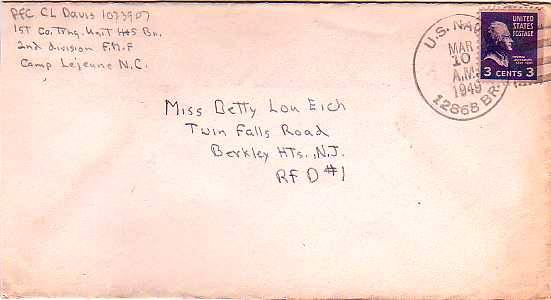 PFC. CL Davis 1073907
1ST Co. Trng. Unit H&S Bn.
2nd division F.M.F
Camp Lejeune N.C.
U.S. NAVY
MAR
10
A.M.
1949
12868 BR.
UNITED
STATES
POSTAGE
3 CENTS 3
Miss Betty Lou Eich
Twin Falls Road
Berkley HTs., N.J.
RFD #1